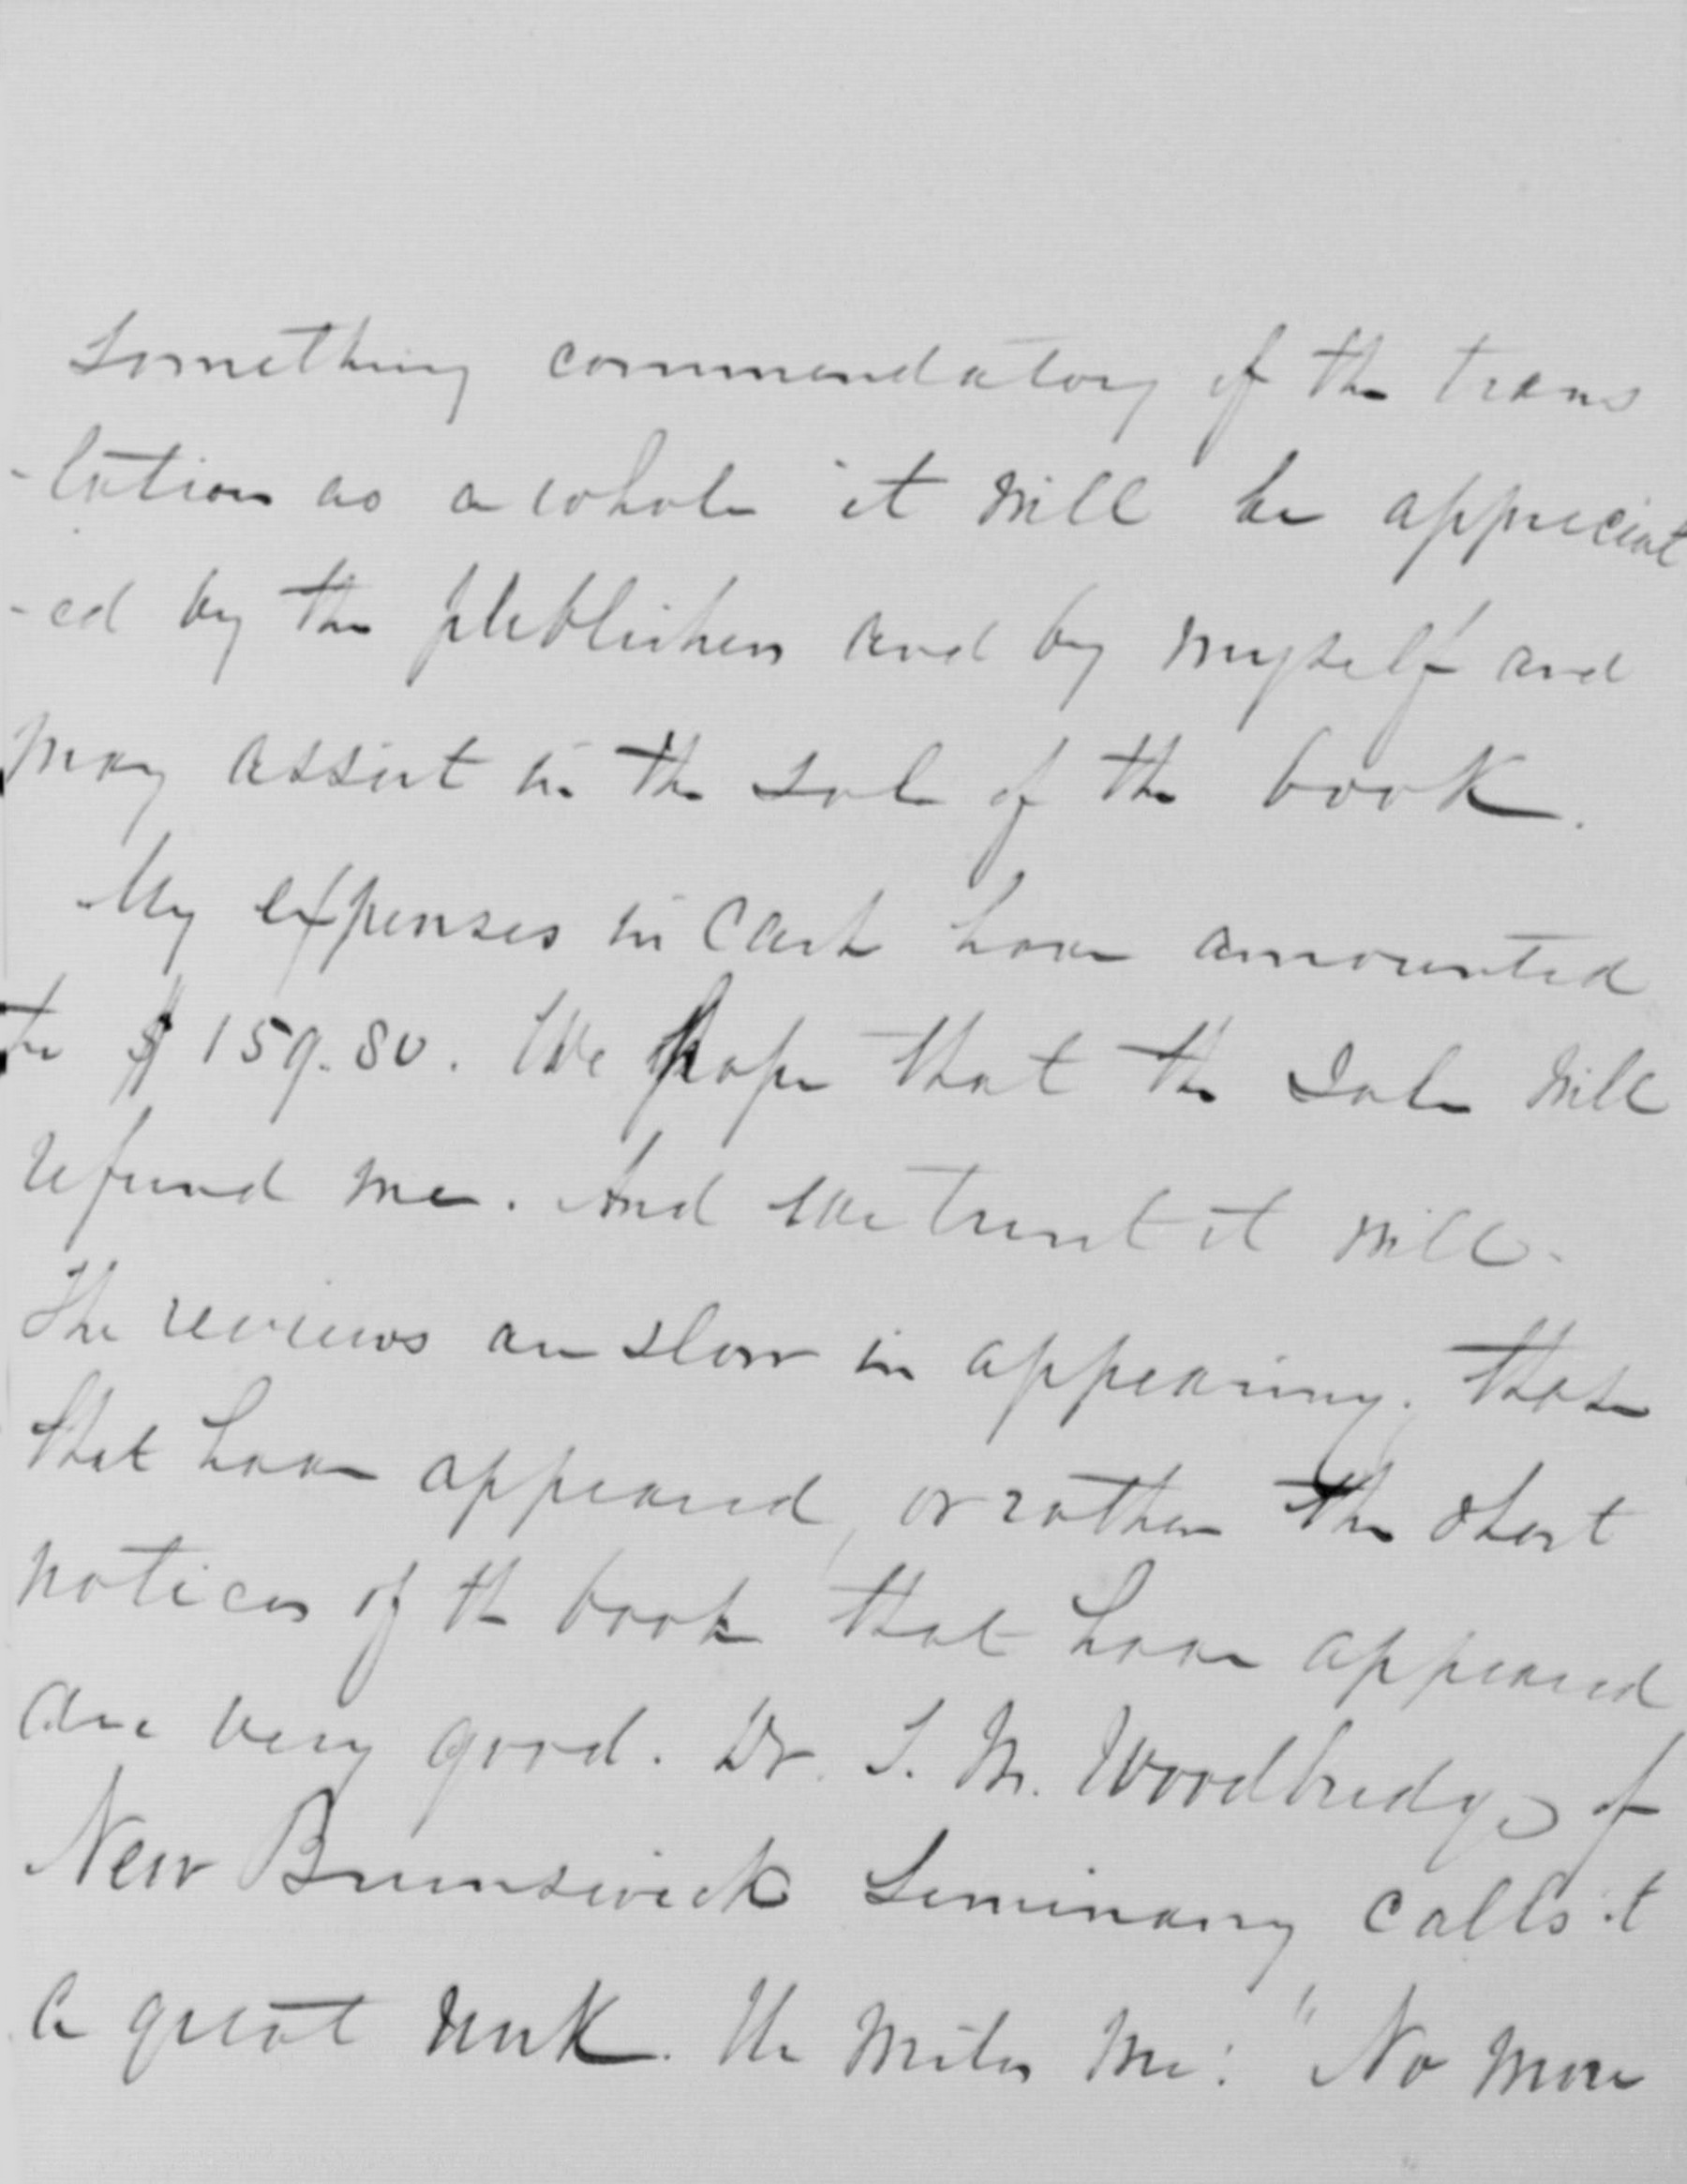 something commendatory of the trans
-lation as a whole it will be appreciat
-ed by the publishers and by myself and
may assist in the sale of the book.
My expenses in cash have amounted
to $159.80. We hope that the sale will
refund me. And we trust it will.
The reviews are slow in appearing. Those
that have appeared, or rather the short
notices of the book that have appeared
are very good. Dr. S. M. Woodbridge of
New Brunswick Seminary calls it
a great work. He writes me: "No more